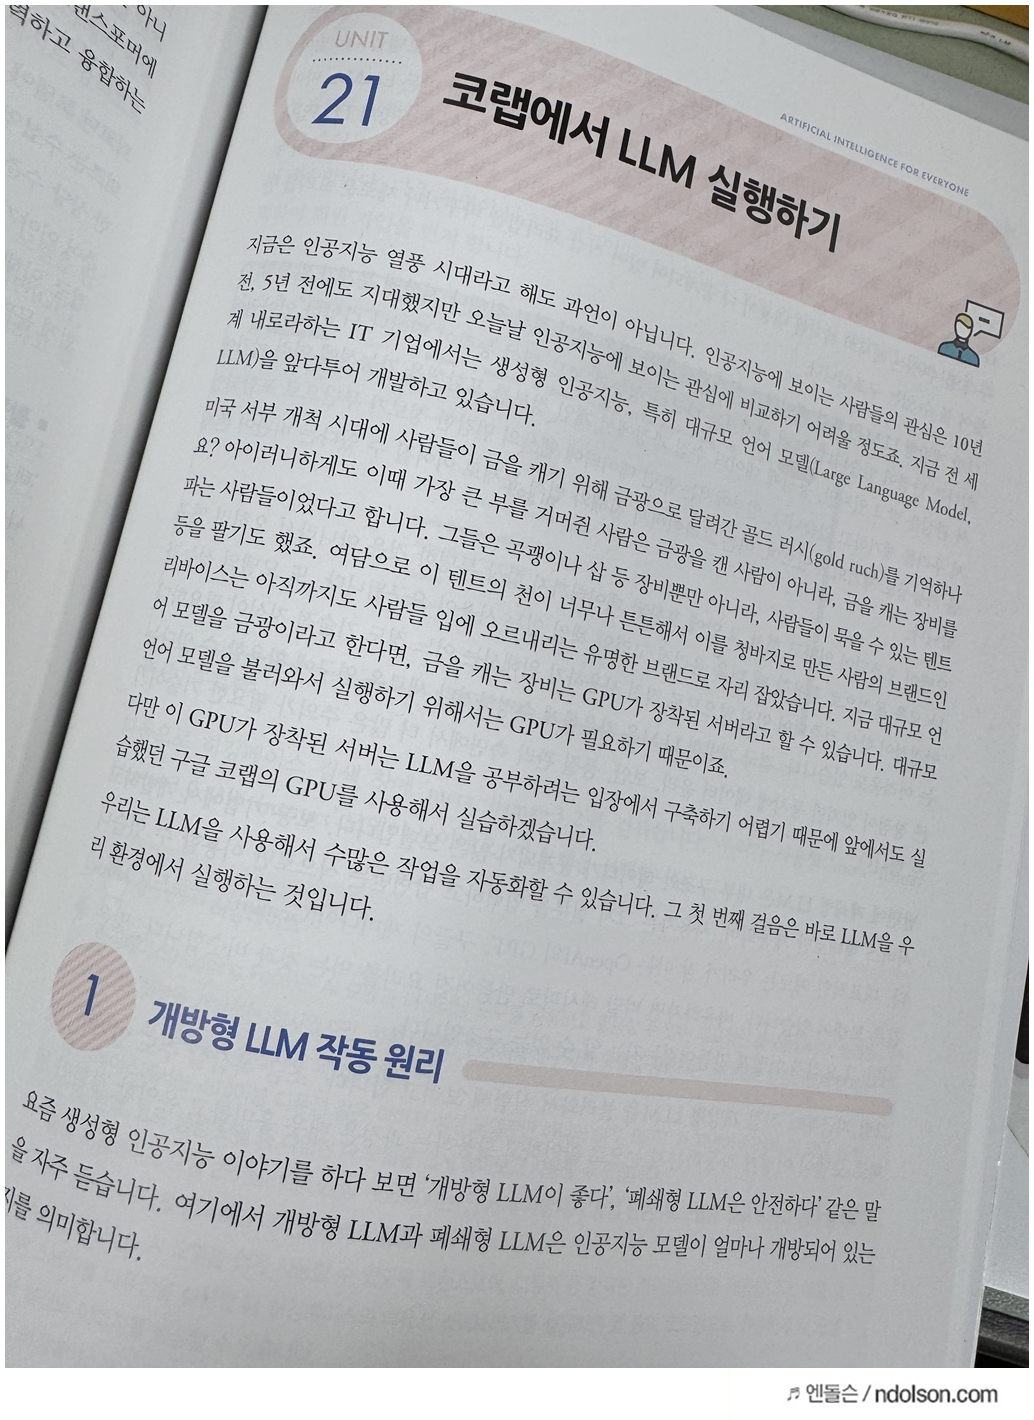 아니
랜스포머에
력하고 융합하는
UNIT
21
코랩에서 LLM 실행하기
ARTIFICIAL INTELLIGENCE FOR EVERYONE
지금은 인공지능 열풍 시대라고 해도 과언이 아닙니다. 인공지능에 보이는 사람들의 관심은 10년
전, 5년 전에도 지대했지만 오늘날 인공지능에 보이는 관심에 비교하기 어려울 정도죠. 지금 전 세
계 내로라하는 IT 기업에서는 생성형 인공지능, 특히 대규모 언어 모델(Large Language Model,
LLM)을 앞다투어 개발하고 있습니다.
미국 서부 개척 시대에 사람들이 금을 캐기 위해 금광으로 달려간 골드 러시(gold ruch)를 기억하나
요? 아이러니하게도 이때 가장 큰 부를 거머쥔 사람은 금광을 캔 사람이 아니라, 금을 캐는 장비를
파는 사람들이었다고 합니다. 그들은 곡괭이나 삽 등 장비뿐만 아니라, 사람들이 묵을 수 있는 텐트
등을 팔기도 했죠. 여담으로 이 텐트의 천이 너무나 튼튼해서 이를 청바지로 만든 사람의 브랜드인
리바이스는 아직까지도 사람들 입에 오르내리는 유명한 브랜드로 자리 잡았습니다. 지금 대규모 언
어 모델을 금광이라고 한다면, 금을 캐는 장비는 GPU가 장착된 서버라고 할 수 있습니다. 대규모
언어 모델을 불러와서 실행하기 위해서는 GPU가 필요하기 때문이죠.
다만 이 GPU가 장착된 서버는 LLM을 공부하려는 입장에서 구축하기 어렵기 때문에 앞에서도 실
습했던 구글 코랩의 GPU를 사용해서 실습하겠습니다.
우리는 LLM을 사용해서 수많은 작업을 자동화할 수 있습니다. 그 첫 번째 걸음은 바로 LLM을 우
리 환경에서 실행하는 것입니다.
1
개방형 LLM 작동 원리
요즘 생성형 인공지능 이야기를 하다 보면 ‘개방형 LLM이 좋다’, ‘폐쇄형 LLM은 안전하다’ 같은 말
을 자주 듣습니다. 여기에서 개방형 LLM과 폐쇄형 LLM은 인공지능 모델이 얼마나 개방되어 있는
지를 의미합니다.
엔돌슨 / ndolson.com